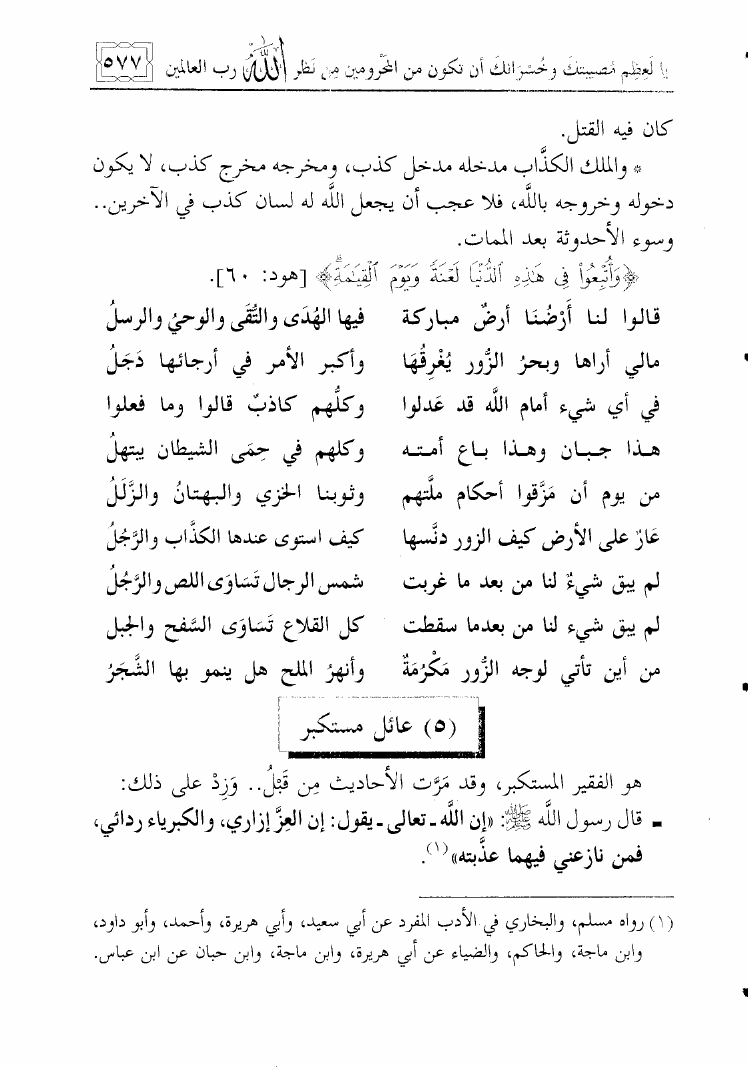 يا لَعِظم مُصيبتكَ وخُسرَانكَ أن تكون من المحْرومين مِن نَظر اللَّه رب العالمين ٥٧٧
كان فيه القتل.
* والملك الكذَّاب مدخله مدخل كذب، ومخرجه مخرج كذب، لا يكون
دخوله وخروجه باللَّه، فلا عجب أن يجعل اللَّه له لسان كذب في الآخرين..
وسوء الأحدوثة بعد الممات.
﴿وَأُتْبِعُواْ فِي هَٰذِهِ الدُّنْيَا لَعْنَةً وَيَوْمَ الْقِيَامَةِ﴾ [هود: ٦٠].
قالوا لنا أَرْضُنَا أرضٌ مباركة فيها الهُدَى والتُّقَى والوحيُ والرسلُ
مالي أراها وبحرُ الزُّور يُغْرِقُهَا وأكبر الأمر في أرجائها دَجَلُ
في أي شيء أمام اللَّه قد عَدلوا وكلُّهم كاذبٌ قالوا وما فعلوا
هذا جبان وهذا باع أمته وكلهم في حِمَى الشيطان يبتهلُ
من يوم أن مَزَّقوا أحكام ملَّتهم وثوبنا الخزي والبهتانُ والزَّلَلُ
عَارٌ على الأرض كيف الزور دنَّسها كيف استوى عندها الكذَّاب والرَّجُلُ
لم يبق شيءٌ لنا من بعد ما غربت شمس الرجال تَسَاوَى اللص والرَّجُلُ
لم يبق شيء لنا من بعدما سقطت كل القلاع تَسَاوَى السَّفح والجبل
من أين تأتي لوجه الزُّور مَكْرُمَةٌ وأنهرُ الملح هل ينمو بها الشَّجَرُ
(٥) عائل مستكبر
هو الفقير المستكبر، وقد مَرَّت الأحاديث مِن قَبْلُ.. وَزِدْ على ذلك:
- قال رسول اللَّه ﷺ: «إن اللَّه - تعالى - يقول: إن العِزَّ إزاري، والكبرياء ردائي،
فمن نازعني فيهما عذَّبته»(١).
(١) رواه مسلم، والبخاري في الأدب المفرد عن أبي سعيد، وأبي هريرة، وأحمد، وأبو داود،
وابن ماجة، والحاكم، والضياء عن أبي هريرة، وابن ماجة، وابن حبان عن ابن عباس.